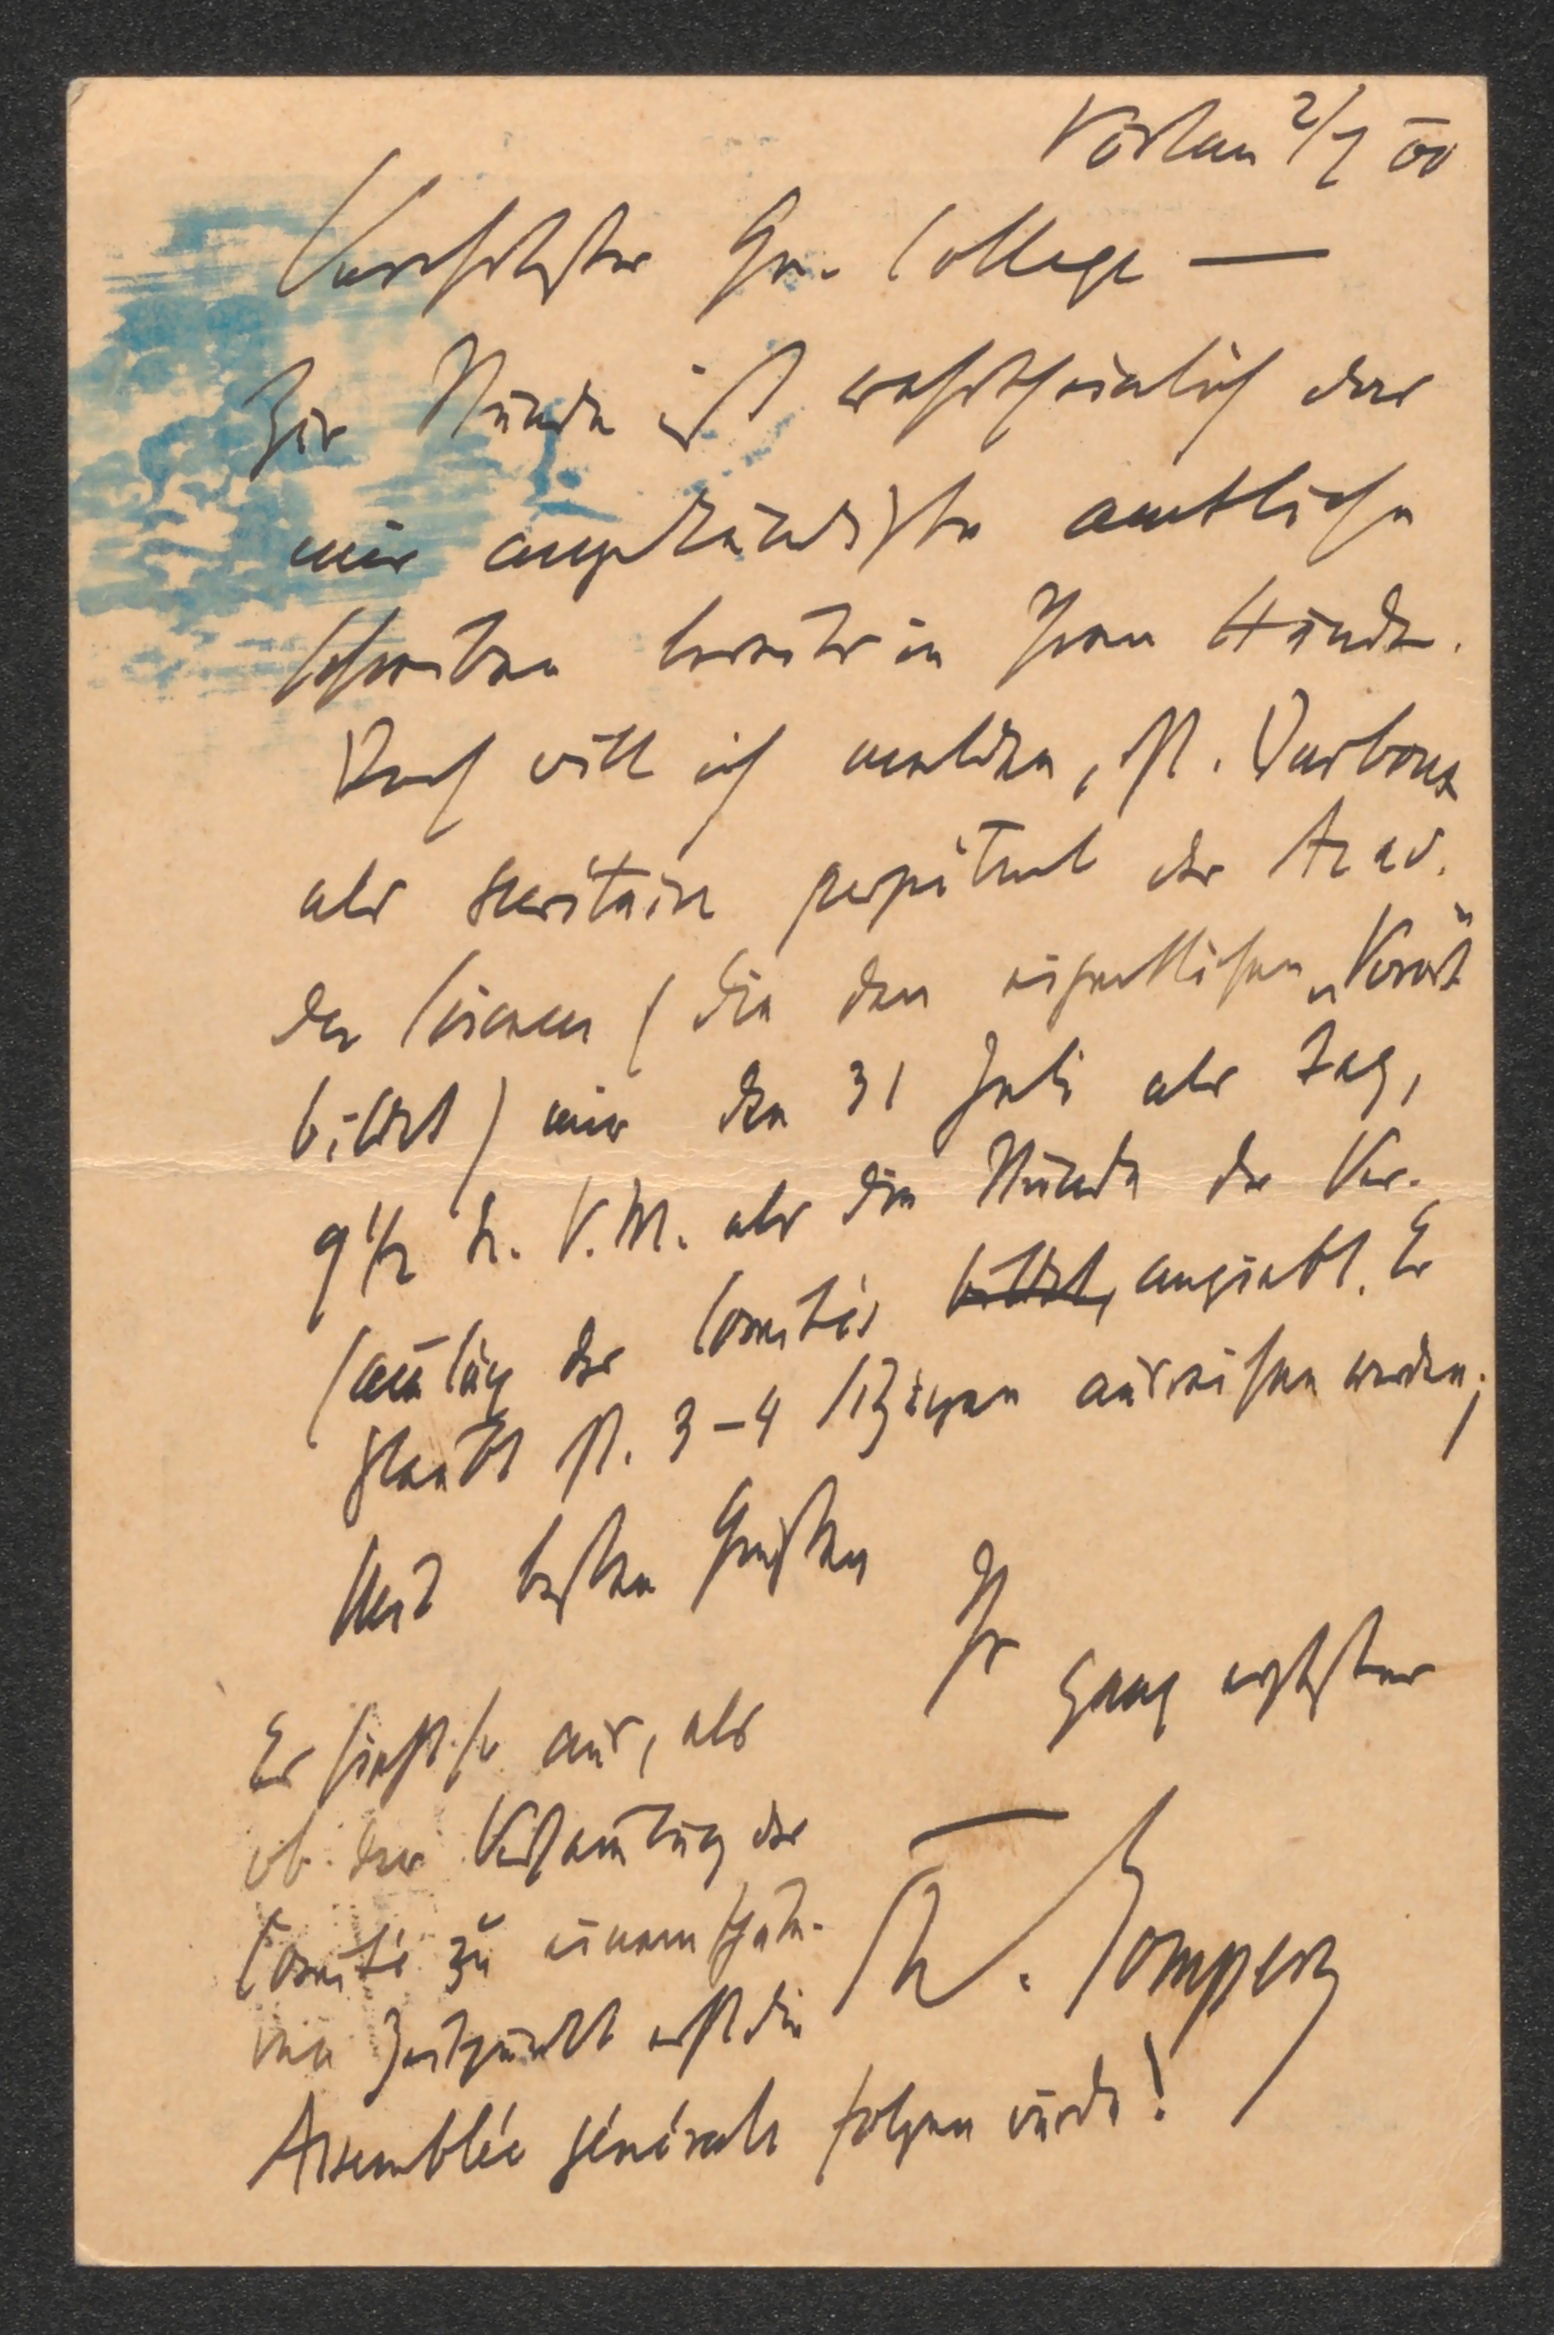 Vöslau 2/7 00
Verehrtester Hr. College —
Zur Stunde ist wahrscheinlich das
mir angekündigte amtliche
Schreiben bereits in Ihren Händen.
Doch will ich melden, dß. Darboux
als secrétaire perpétuel der Acad.
des Sciences (die den eigentlichen „Vorort"
bildet) mir den 31 Juli als Tag,
9 1/2 h. V.M. als die Stunde der Ver-
samlūg der Comités bildet, angiebt. Er
glaubt dß. 3–4 Sitzūgen ausreichen werden;
Mit besten Grüßen
Ihr
ganz ergebster
Th. Gomperz
Er sieht so aus, als
ob der Versamlūg des
Comité zu einem späte-
ren Zeitpunkt erst die
Assemblée générale folgen würde!